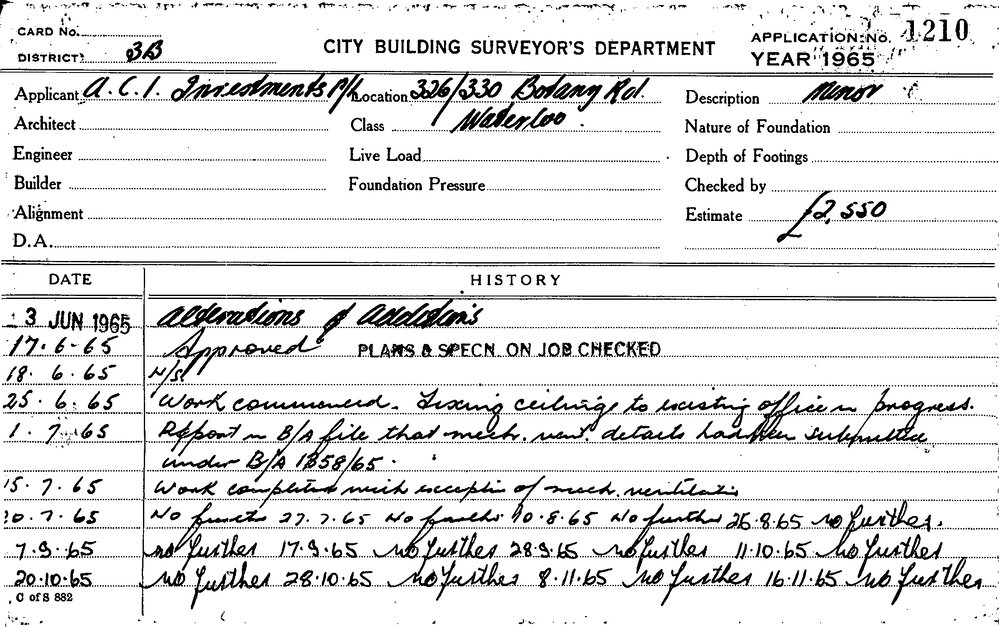 CARD No.
DISTRICT: 3B
CITY BUILDING SURVEYOR'S DEPARTMENT
APPLICATION: No. 1210
YEAR 1965
Applicant A.C.I. Investments P/L Location 326/330 Botany Rd. Description Minor
Architect Class Waterloo. Nature of Foundation
Engineer Live Load Depth of Footings
Builder Foundation Pressure Checked by
Alignment Estimate £2,550
D.A.
DATE HISTORY
3 JUN 1965 Alterations & Additions
17.6-65 Approved PLANS & SPECN. ON JOB CHECKED
18.6.65 N/S
25.6.65 Work commenced. Fixing ceilings to existing office in progress.
1.7.65 Report in B/A file that mech. vent. details had been submitted
under B/A 1358/65.
15.7.65 Work completed with exception of mech. ventilation
20.7.65 No further 27.7.65 No further 10.8.65 No further 26.8.65 no further.
7.9.65 no further 17.9.65 no further 28.9.65 no further 11.10.65 no further
20.10.65 no further 28.10.65 no further 8.11.65 no further 16.11.65 no further
C of S 882